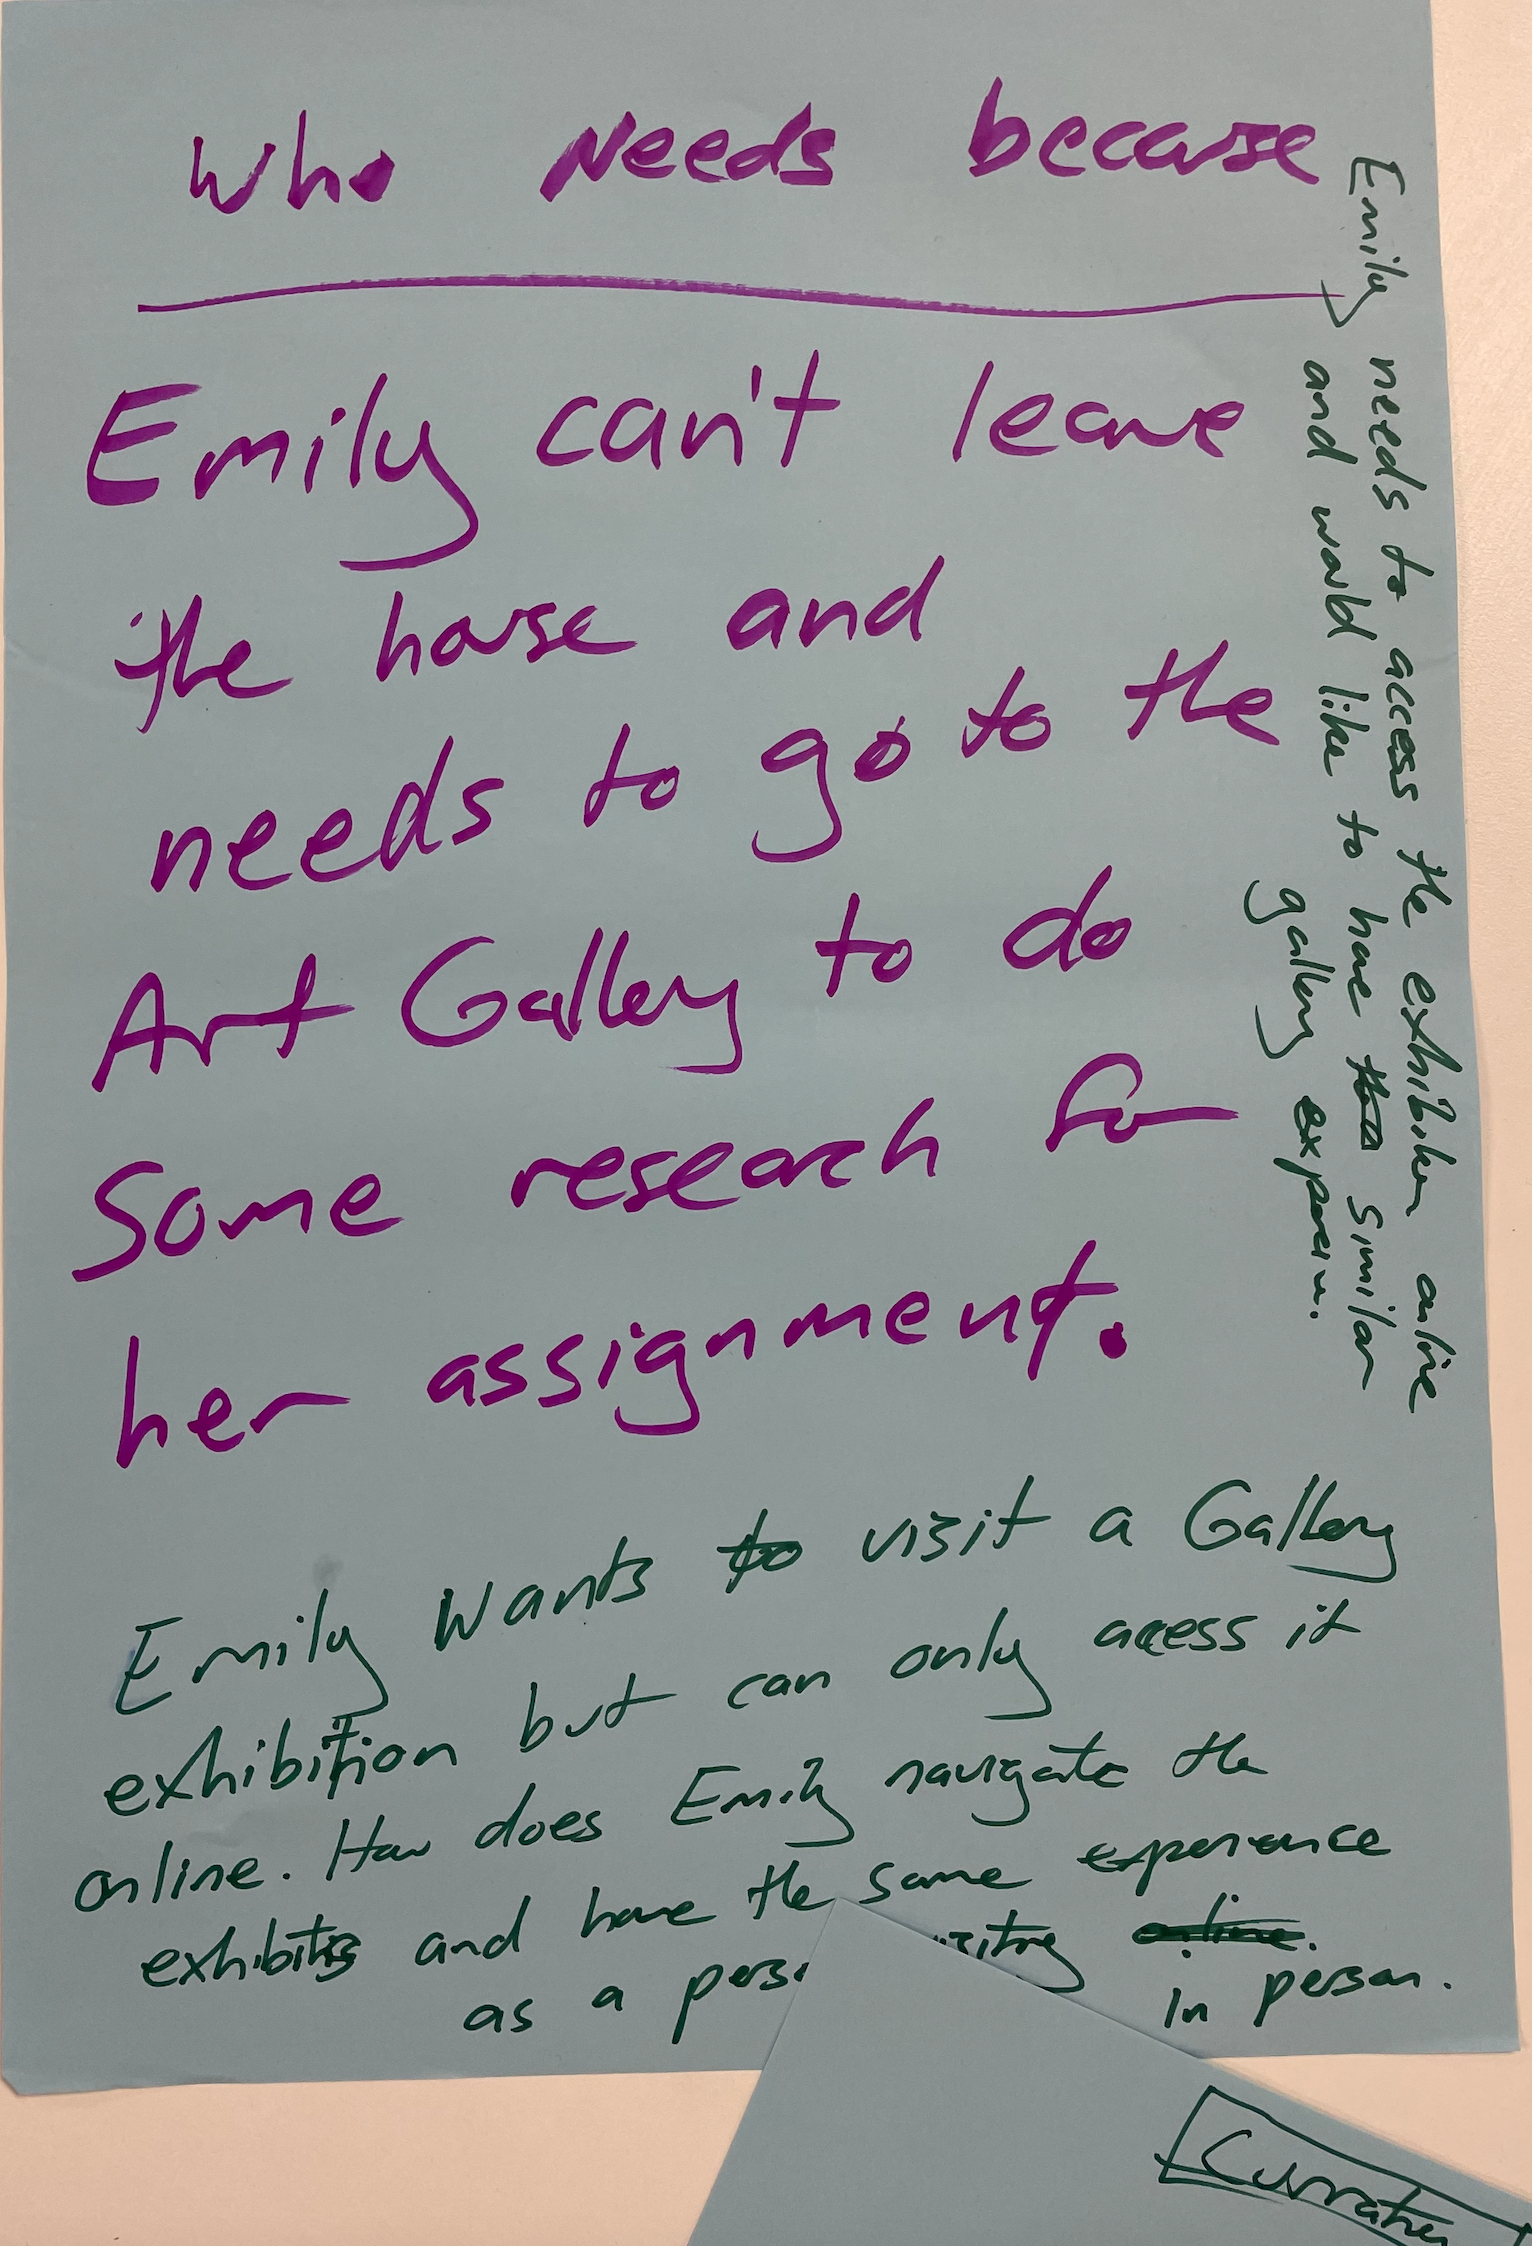 Who Needs because
Emily can't leave
the house and
needs to go to the
Art Gallery to do
Some research for
her assignment.
Emily needs to access the exhibition online
and would like to have similar
gallery
Emily Wants to visit a Gallery
exhibition but can only access it
online. How does Emily navigate the
exhibits and have the same experience
as a in person.